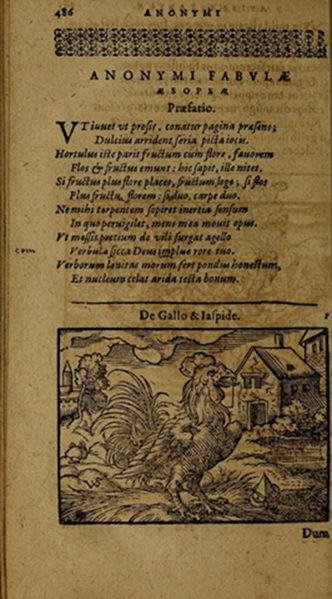 486 ANONYMI
ANONYMI FABVLÆ
ÆSOPEÆ
Præfatio.
VT iuuet vt prosit, conatur pagina præsens;
Dulcius arrident seria picta iocis.
Hortulus iste parit fructum cum flore, fauorem
Flos & fructus emunt: hic sapit, ille nites.
Si fructus plus flore placet, fructum lege; si flos
Plus fructu, florem: si duo, carpe duo.
Ne mihi torpentem sopiret inertia sensum
In quo peruigiles, mens mea mouit opus.
Vt messis pretium de vili surgat agello
com Verbula sicca Deus implue rore tuo.
Verborum leuitas morum fert pondus honestum,
Et nucleum celat arida testa bonum.
De Gallo & Iaspide.
Dum